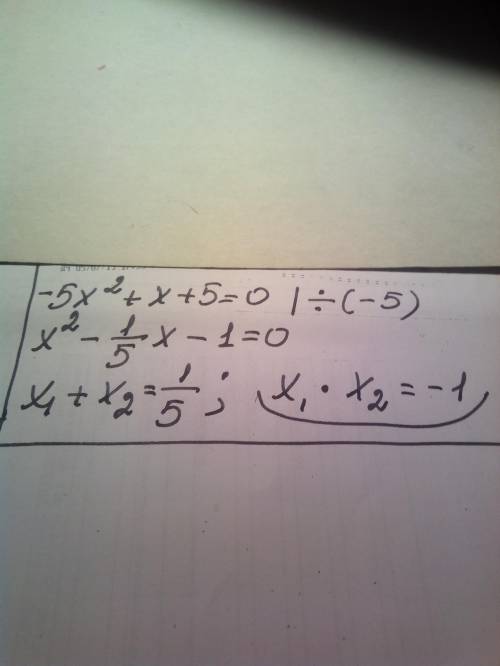 -5x² + x + 5 = 0 | ÷ (-5)
x² - 1/5 x - 1 = 0
x₁ + x₂ = 1/5 ; x₁ · x₂ = -1